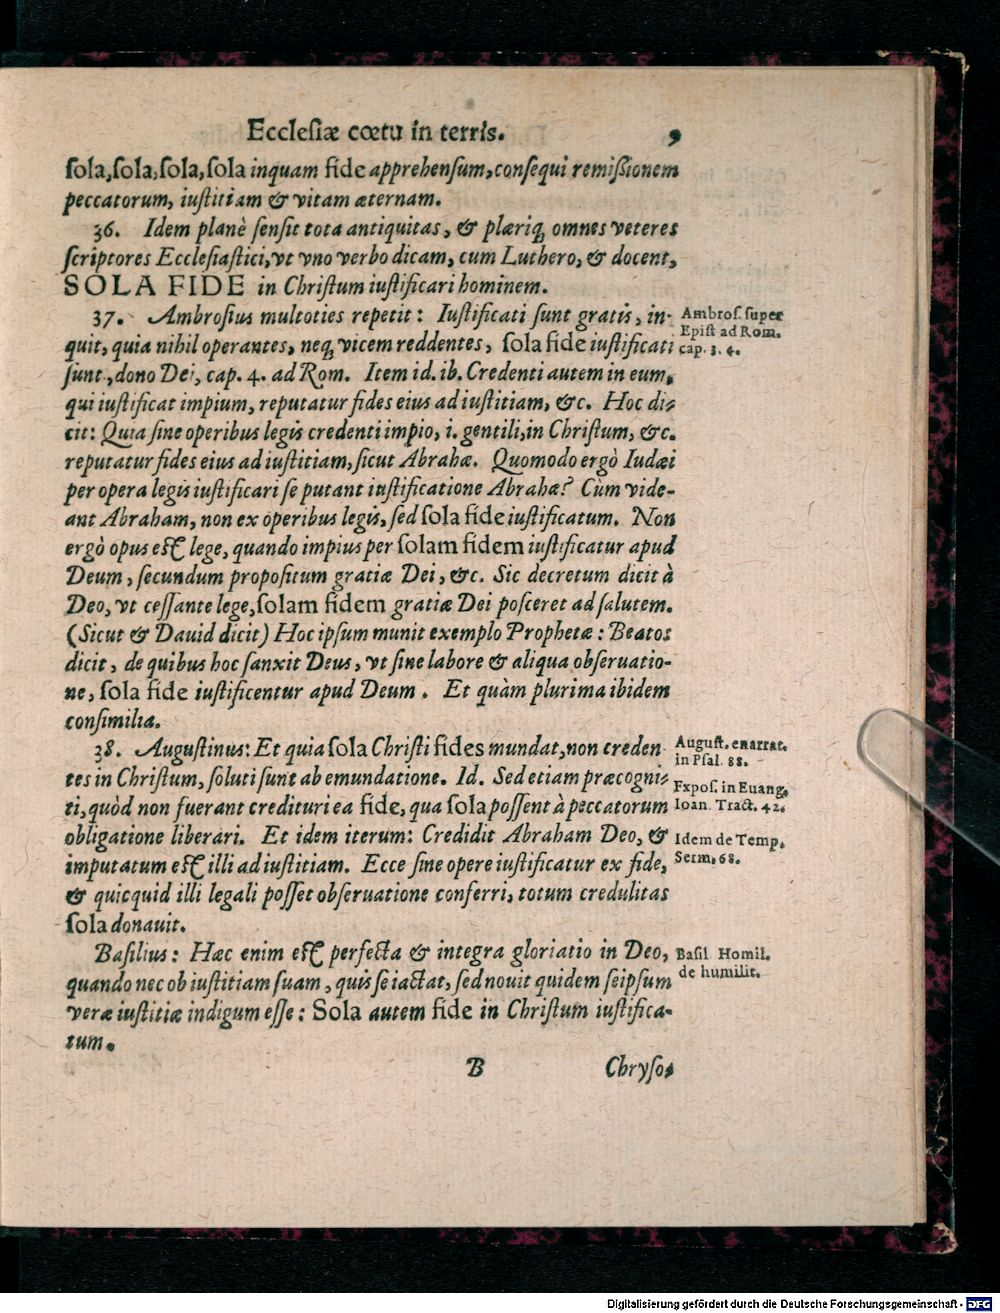 Ecclesiæ cœtu in terris. 9
sola, sola, sola, sola inquam fide apprehensum, consequi remißionem
peccatorum, iustitiam & vitam æternam.
36. Idem planè sensit tota antiquitas, & plæriq; omnes veteres
scriptores Ecclesiastici, vt vno verbo dicam, cum Luthero, & docent,
SOLA FIDE in Christum iustificari hominem.
37. Ambrosius multoties repetit: Iustificati sunt gratis, in-
quit, quia nihil operantes, neq; vicem reddentes, sola fide iustificati
sunt, dono Dei, cap. 4. ad Rom. Item id. ib. Credenti autem in eum,
qui iustificat impium, reputatur fides eius ad iustitiam, &c. Hoc di-
cit: Quia sine operibus legis credenti impio, i. gentili, in Christum, &c.
reputatur fides eius ad iustitiam, sicut Abrahæ. Quomodo ergò Iudæi
per opera legis iustificari se putant iustificatione Abrahæ? Cùm vide-
ant Abraham, non ex operibus legis, sed sola fide iustificatum. Non
ergò opus est lege, quando impius per solam fidem iustificatur apud
Deum, secundum propositum gratiæ Dei, &c. Sic decretum dicit à
Deo, vt cessante lege, solam fidem gratiæ Dei posceret ad salutem.
(Sicut & Dauid dicit) Hoc ipsum munit exemplo Prophetæ: Beatos
dicit, de quibus hoc sanxit Deus, vt sine labore & aliqua obseruatio-
ne, sola fide iustificentur apud Deum. Et quàm plurima ibidem
consimilia.
38. Augustinus: Et quia sola Christi fides mundat, non creden-
tes in Christum, soluti sunt ab emundatione. Id. Sed etiam præcogni-
ti, quòd non fuerant credituri ea fide, qua sola possent à peccatorum
obligatione liberari. Et idem iterum: Credidit Abraham Deo, &
imputatum est illi ad iustitiam. Ecce sine opere iustificatur ex fide,
& quicquid illi legali posset obseruatione conferri, totum credulitas
sola donauit.
Basilius: Hæc enim est perfecta & integra gloriatio in Deo,
quando nec ob iustitiam suam, quis se iactat, sed nouit quidem seipsum
veræ iustitiæ indigum esse: Sola autem fide in Christum iustifica-
tum.
B Chryso-
Ambros. super
Epist ad Rom.
cap. 3. 4.
August. enarrat.
in Psal. 88.
Expos. in Euang.
Ioan. Tract. 42.
Idem de Temp.
Serm. 68.
Basil Homil.
de humilit.
Digitalisierung gefördert durch die Deutsche Forschungsgemeinschaft - DFG